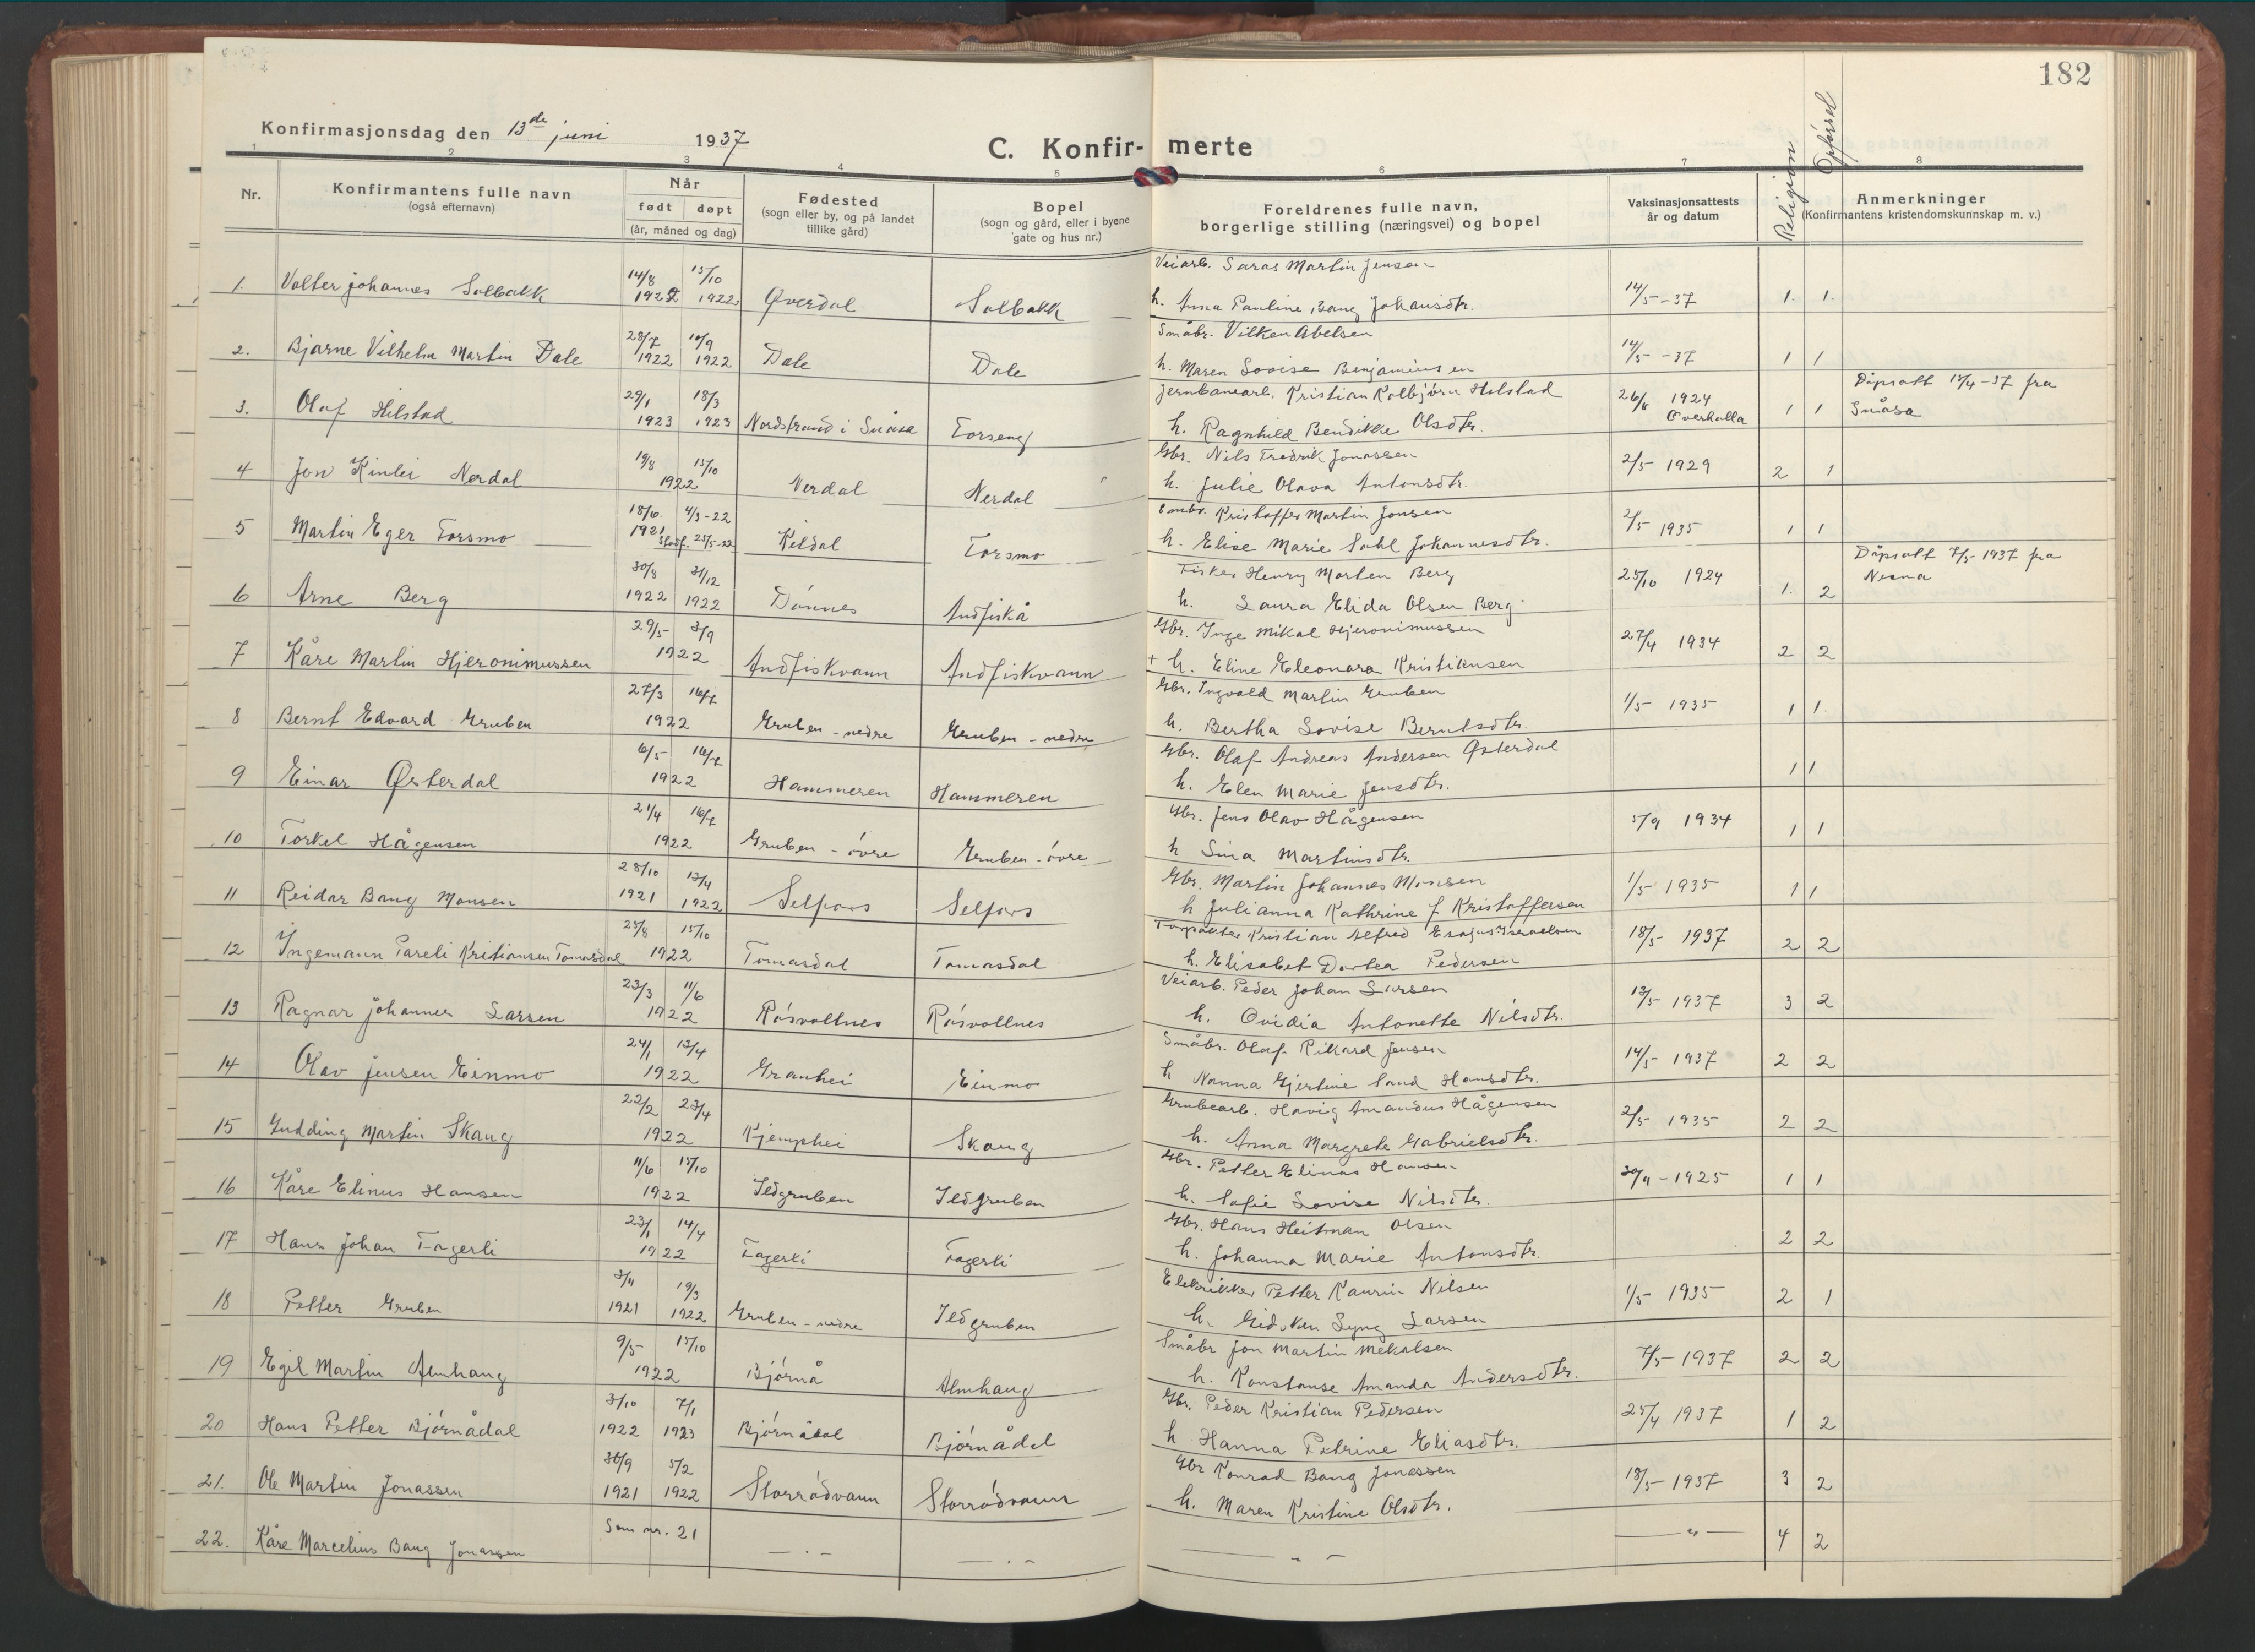 182
Konfirmasjonsdag den 13de juni 1937
C. Konfir- merte
1 2 3 4 5 6 7 8
Nr.
Konfirmantens fulle navn
(også efternavn)
Når
født døpt
(år, måned og dag)
Fødested
(sogn eller by, og på landet
tillike gård)
Bopel
(sogn og gård, eller i byene
gate og hus nr.)
Foreldrenes fulle navn,
borgerlige stilling (næringsvei) og bopel
Vaksinasjonsattests
år og datum
Religion
Opførsel
Anmerkninger
(Konfirmantens kristendomskunnskap m. v.)
14/8 15/10 Veiarb. Saras Martin Jensen
1. Valter Johannes Solbakk 1922 1922 Øverdal Solbakk h. Anna Pauline Bang Johansdtr. 14/5-37 1. 1.
28/7 10/9 Småbr. Vilken Abelsen
2. Bjarne Vilhelm Martin Dale 1922 1922 Dale Dale h. Maren Lovise Benjaminsen 14/5-37 1 1
29/1 18/3 Jernbanearb. Kristian Kolbjørn Hilstad 26/6 1924 Dåpsatt 12/4-37 fra
3. Olaf Hilstad 1923 1923 Nordstrand i Snåsa Torseng h. Ragnhild Bendikke Olsdtr. Overhalla 1 1 Snåsa
19/8 15/10 Gbr. Nils Fredrik Jonassen
4 Jon Kinlei Nerdal 1922 Nerdal Nerdal h. Julie Olava Antonsdtr. 2/5 1929 2 1
18/6. 4/3-22 Småbr. Kristoffer Martin Jonsen
5 Martin Eger Torsmo 1921 Stadf. 25/5-22 Kildal Torsmo h. Elise Marie Dahl Johannesdtr. 2/5 1935 1 1
30/8 31/12 Fisker Henry Morten Berg Dåpsatt 7/5-1937 fra
6 Arne Berg 1922 1922 Dønnes Andfiskå h. Laura Elida Olsen Berg 25/10 1924 1. 2 Nesna
29/5 3/9 Gbr. Inge Mikal Hjeronimussen
7 Kåre Martin Hjeronimussen 1922 Andfiskvann Andfiskvann + h. Eline Eleonora Kristiansen 27/4 1934 2 2
27/3 16/7 Gbr. Ingvald Martin Gruben
8 Bernt Edvard Gruben 1922 Gruben - nedre Gruben - nedre h. Bertha Lovise Berntsdtr. 1/5 1935 1 1.
6/5 16/7 Gbr. Olaf Andreas Andersen Østerdal
9 Einar Østerdal 1922 Hammeren Hammeren h. Elen Marie Jensdtr. 1 1
21/4 16/7 Gbr. Jens Olav Hågensen
10 Torkel Hågensen 1922 Gruben - övre Gruben - övre h Sina Martinsdtr. 5/9 1934 1 1
28/10 17/4 Gbr. Martin Johannes Monsen
11 Reidar Bang Monsen 1921 1922 Selfors Selfors h Julianna Kathrine f Kristoffersen 1/5 1935 1 1
25/8 15/10 Kristian Alfred Israelsen
12 Ingemann Pareli Kristiansen Tomasdal 1922 Tomasdal Tomasdal h. Elisabet Dortea Pedersen 18/5 1937 2 2
23/3 11/6 Veiarb. Peder Johan Larsen
13 Ragnar Johannes Larsen 1922 Røsvollnes Røsvollnes h. Ovidia Antonette Nilsdtr. 13/5 1937 3 2
24/1 17/4 Småbr. Olaf Rikard Jensen
14 Olav Jensen Einmo 1922 Granhei Einmo h Nanna Gjertine Sand Hansdtr. 14/5 1937 2 2
22/2 23/4 Grubearb. Havig Amandus Hågensen
15 Gudding Martin Skaug 1922 Kjemphei Skaug h. Anna Margrete Gabrielsdtr. 2/5 1935 2 2
11/6 15/10 Gbr. Petter Elinas Hansen
16 Kåre Elinus Hansen 1922 Ildgruben Ildgruben h. Sofie Lovise Nilsdtr. 30/9-1925 1 1
23/1 14/4 Gbr. Hans Heitman Olsen
17 Hans Johan Fagerli 1922 Fagerli Fagerli h. Johanna Marie Antonsdtr. 2 2
3/11 19/3 Elektriker Petter Kaurin Nilsen
18 Petter Gruben 1921 1922 Gruben - nedre Ildgruben h. Gidsken Lyng Larsen 1/5 1935 2 1
9/5 15/10 Småbr Jon Martin Mekalsen
19 Egil Martin Almhaug 1922 Bjørnå Almhaug h. Konstanse Amanda Andersdtr. 7/5-1937 2 2
3/10 7/1 Gbr. Peder Kristian Pedersen
20 Hans Petter Bjørnådal 1922 1923 Bjørnådal Bjørnådal h Hanna Petrine Eliasdtr. 25/4 1937 1 2
30/9 5/2 Gbr Konrad Bang Jonassen
21. Ole Martin Jonassen 1921 1922 Storrødvann Storrødvann h. Maren Kristine Olsdtr. 18/5-1937 3 2
22. Kåre Marcelius Bang Jonassen Som nr. 21 — . — — . — — " — — " — 4 2